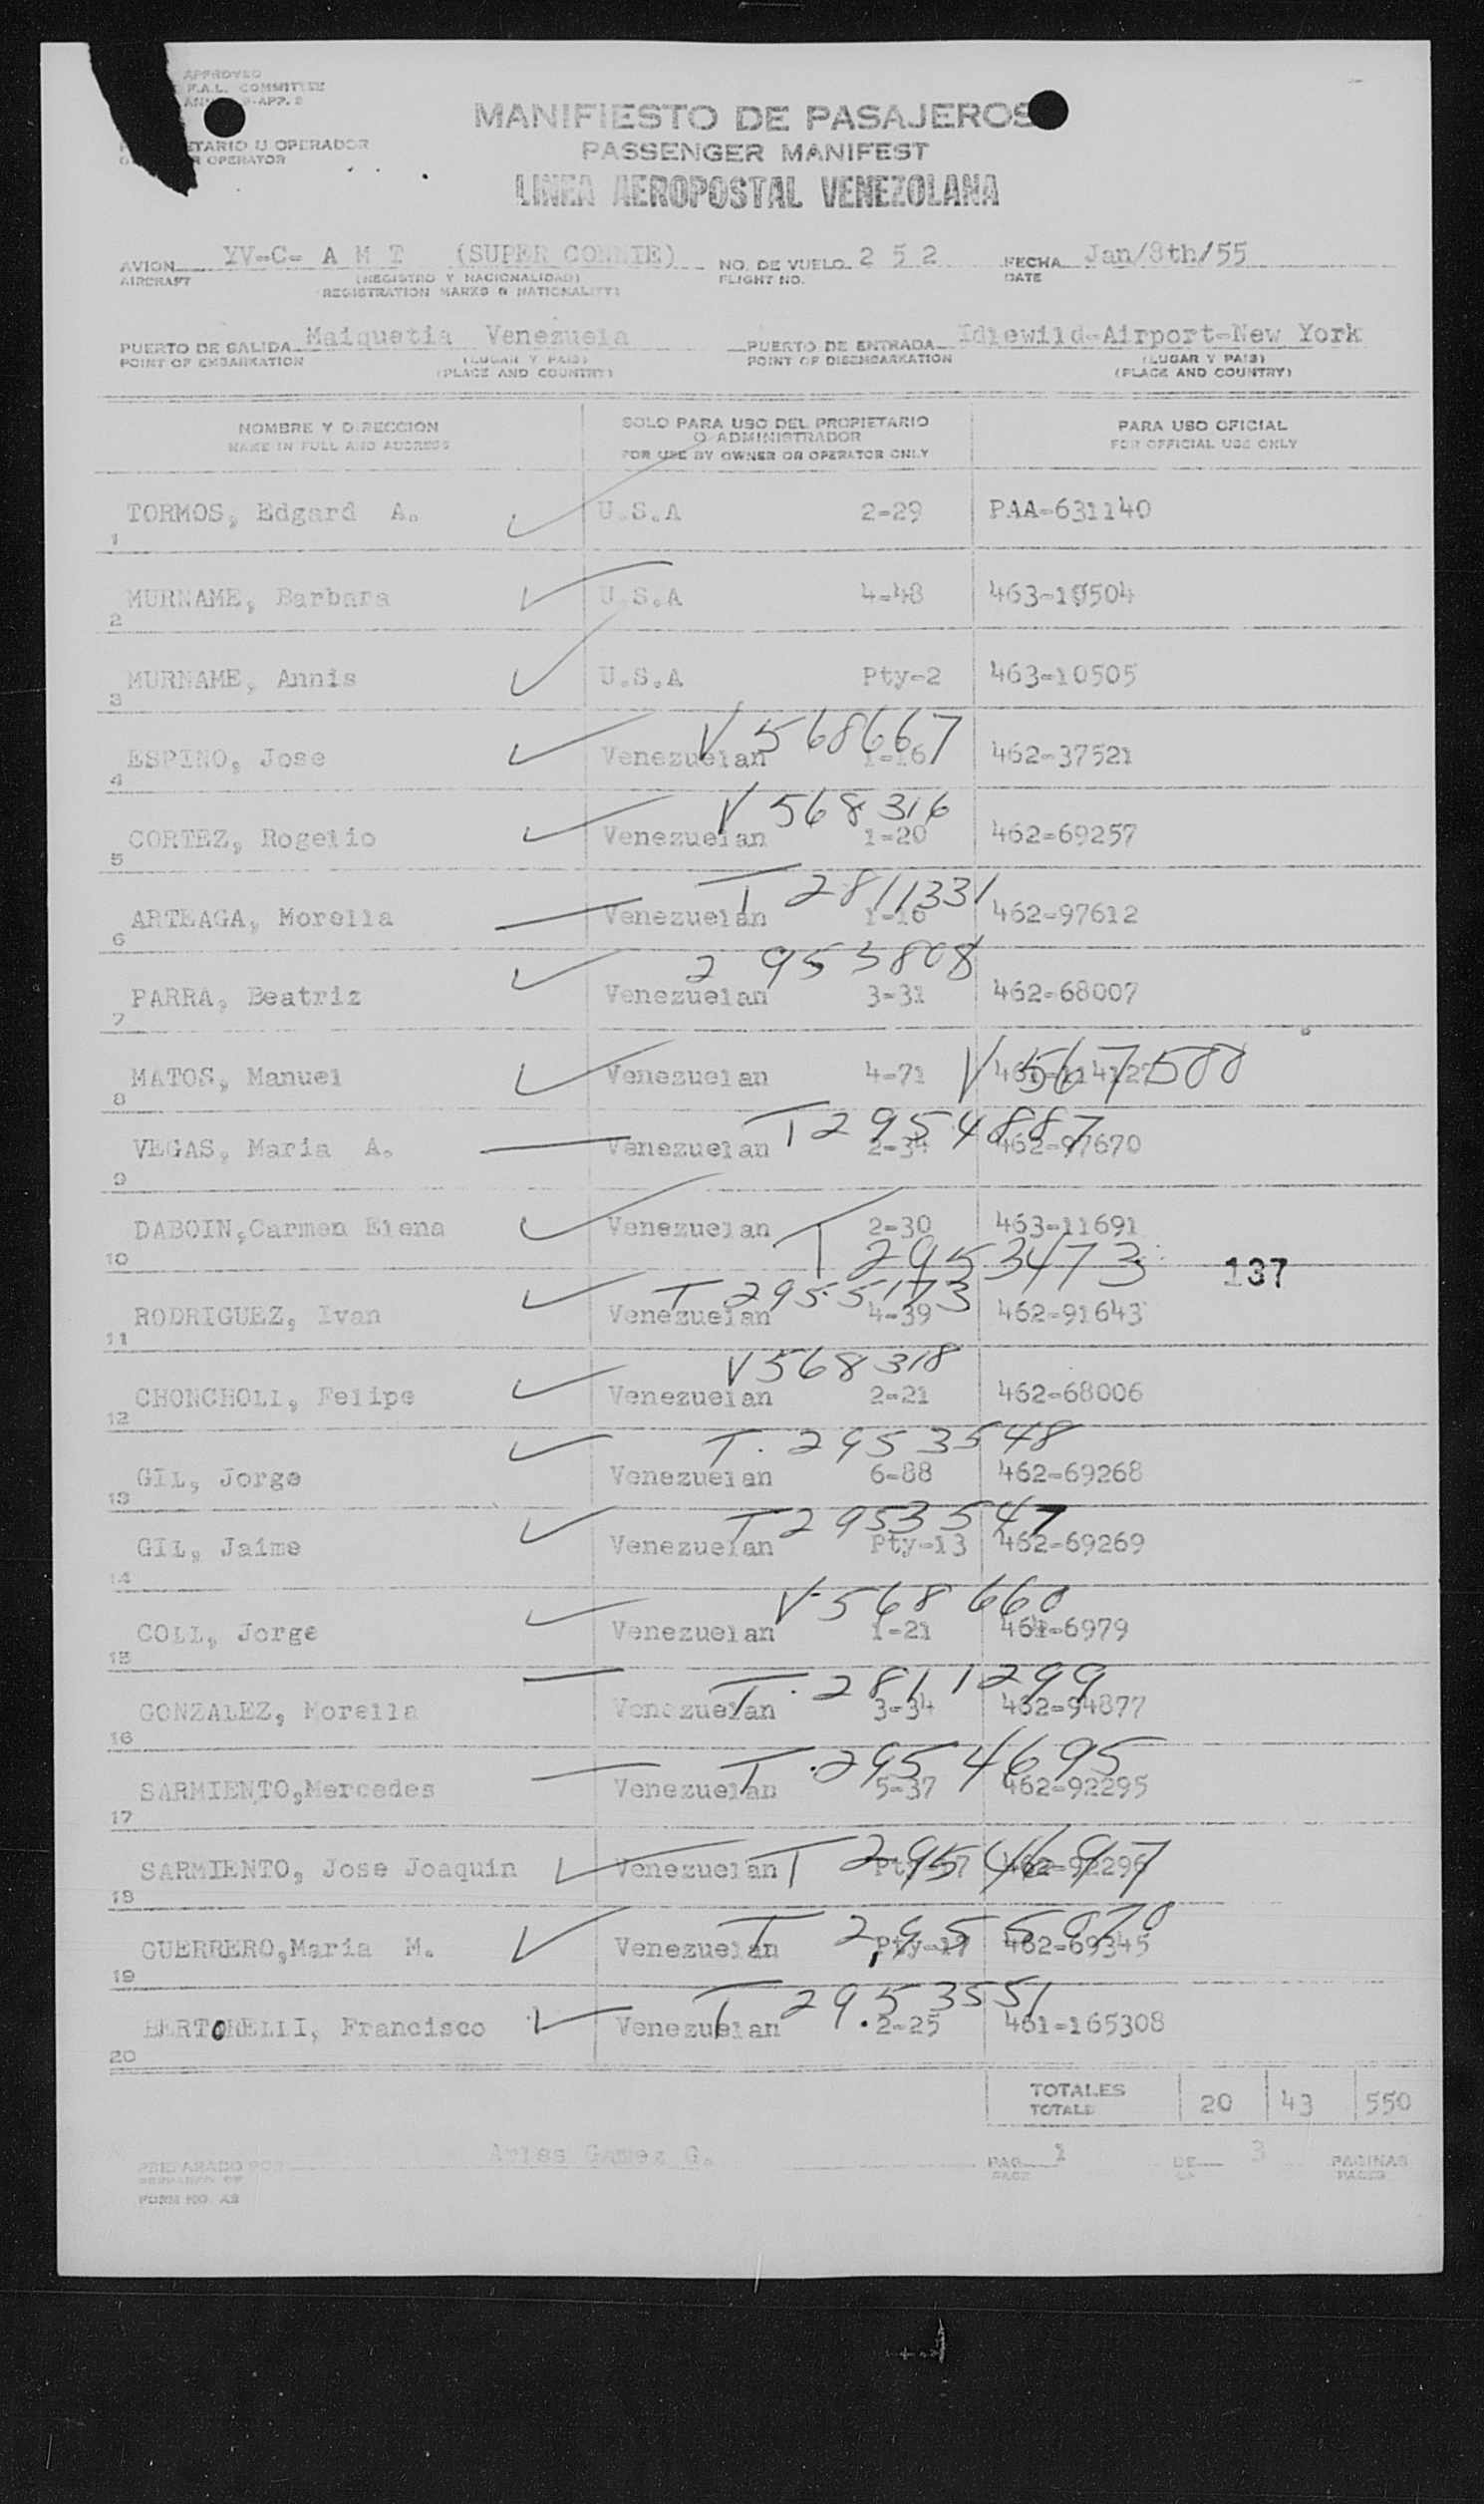 APPROVED
F.A.L. COMMITTEE
9-APP. 2
ETARIO U OPERADOR
R OPERATOR
MANIFIESTO DE PASAJEROS
PASSENGER MANIFEST
LINEA AEROPOSTAL VENEZOLANA
AVION YV-C- A M T (SUPER CONNIE) NO. DE VUELO 2 5 2 FECHA Jan/8th/55
AIRCRAFT (REGISTRO Y NACIONALIDAD) FLIGHT NO. DATE
REGISTRATION MARKS & NATIONALITY)
PUERTO DE SALIDA Maiquetia Venezuela PUERTO DE ENTRADA Idlewild-Airport-New York
POINT OF EMBARKATION (LUGAR Y PAIS) POINT OF DISEMBARKATION (LUGAR Y PAIS)
(PLACE AND COUNTRY) (PLACE AND COUNTRY)
NOMBRE Y DIRECCION SOLO PARA USO DEL PROPIETARIO PARA USO OFICIAL
NAME IN FULL AND ADDRESS O ADMINISTRADOR FOR OFFICIAL USE ONLY
FOR USE BY OWNER OR OPERATOR ONLY
TORMOS, Edgard A. U.S.A 2-29 PAA-631140
1
MURNAME, Barbara U.S.A 4-48 463-10504
2
MURNAME, Annis U.S.A Pty-2 463-10505
3
V 568667
ESPINO, Jose Venezuelan 1-16 462-37521
4
V 568316
CORTEZ, Rogelio Venezuelan 1-20 462-69257
5
T 2811331
ARTEAGA, Morella Venezuelan 1-16 462-97612
6
2 953808
PARRA, Beatriz Venezuelan 3-31 462-68007
7
MATOS, Manuel Venezuelan 4-71 V 567588
8
T 2954887
VEGAS, Maria A. Venezuelan 2-34 462-97670
9
DABOIN,Carmen Elena Venezuelan 2-30 463-11691
10
T 2953473
137
T 2955173
RODRIGUEZ, Ivan Venezuelan 4-39 462-91643
11
V 568318
CHONCHOLI, Felipe Venezuelan 2-21 462-68006
12
T. 2953548
GIL, Jorge Venezuelan 6-88 462-69268
13
T 2953547
GIL, Jaime Venezuelan Pty-13 462-69269
14
V-568660
COLL, Jorge Venezuelan 1-21
15
T. 2811299
GONZALEZ, Morella Venezuelan 3-34 462-94877
16
T. 2954695
SARMIENTO,Mercedes Venezuelan 5-37 462-92295
17
SARMIENTO, Jose Joaquin Venezuelan T 2954697 462-92296
18
T 2955070
GUERRERO,Maria M. Venezuelan Pty-17 462-69345
19
T 2953551
BERTORELLI, Francisco Venezuelan 2-25 461-165308
20
TOTALES 20 43 550
TOTALS
PREPARADO POR G. PAG. 1 DE 3 PAGINAS
PREPARED BY PAGE OF PAGES
FORM NO. A2